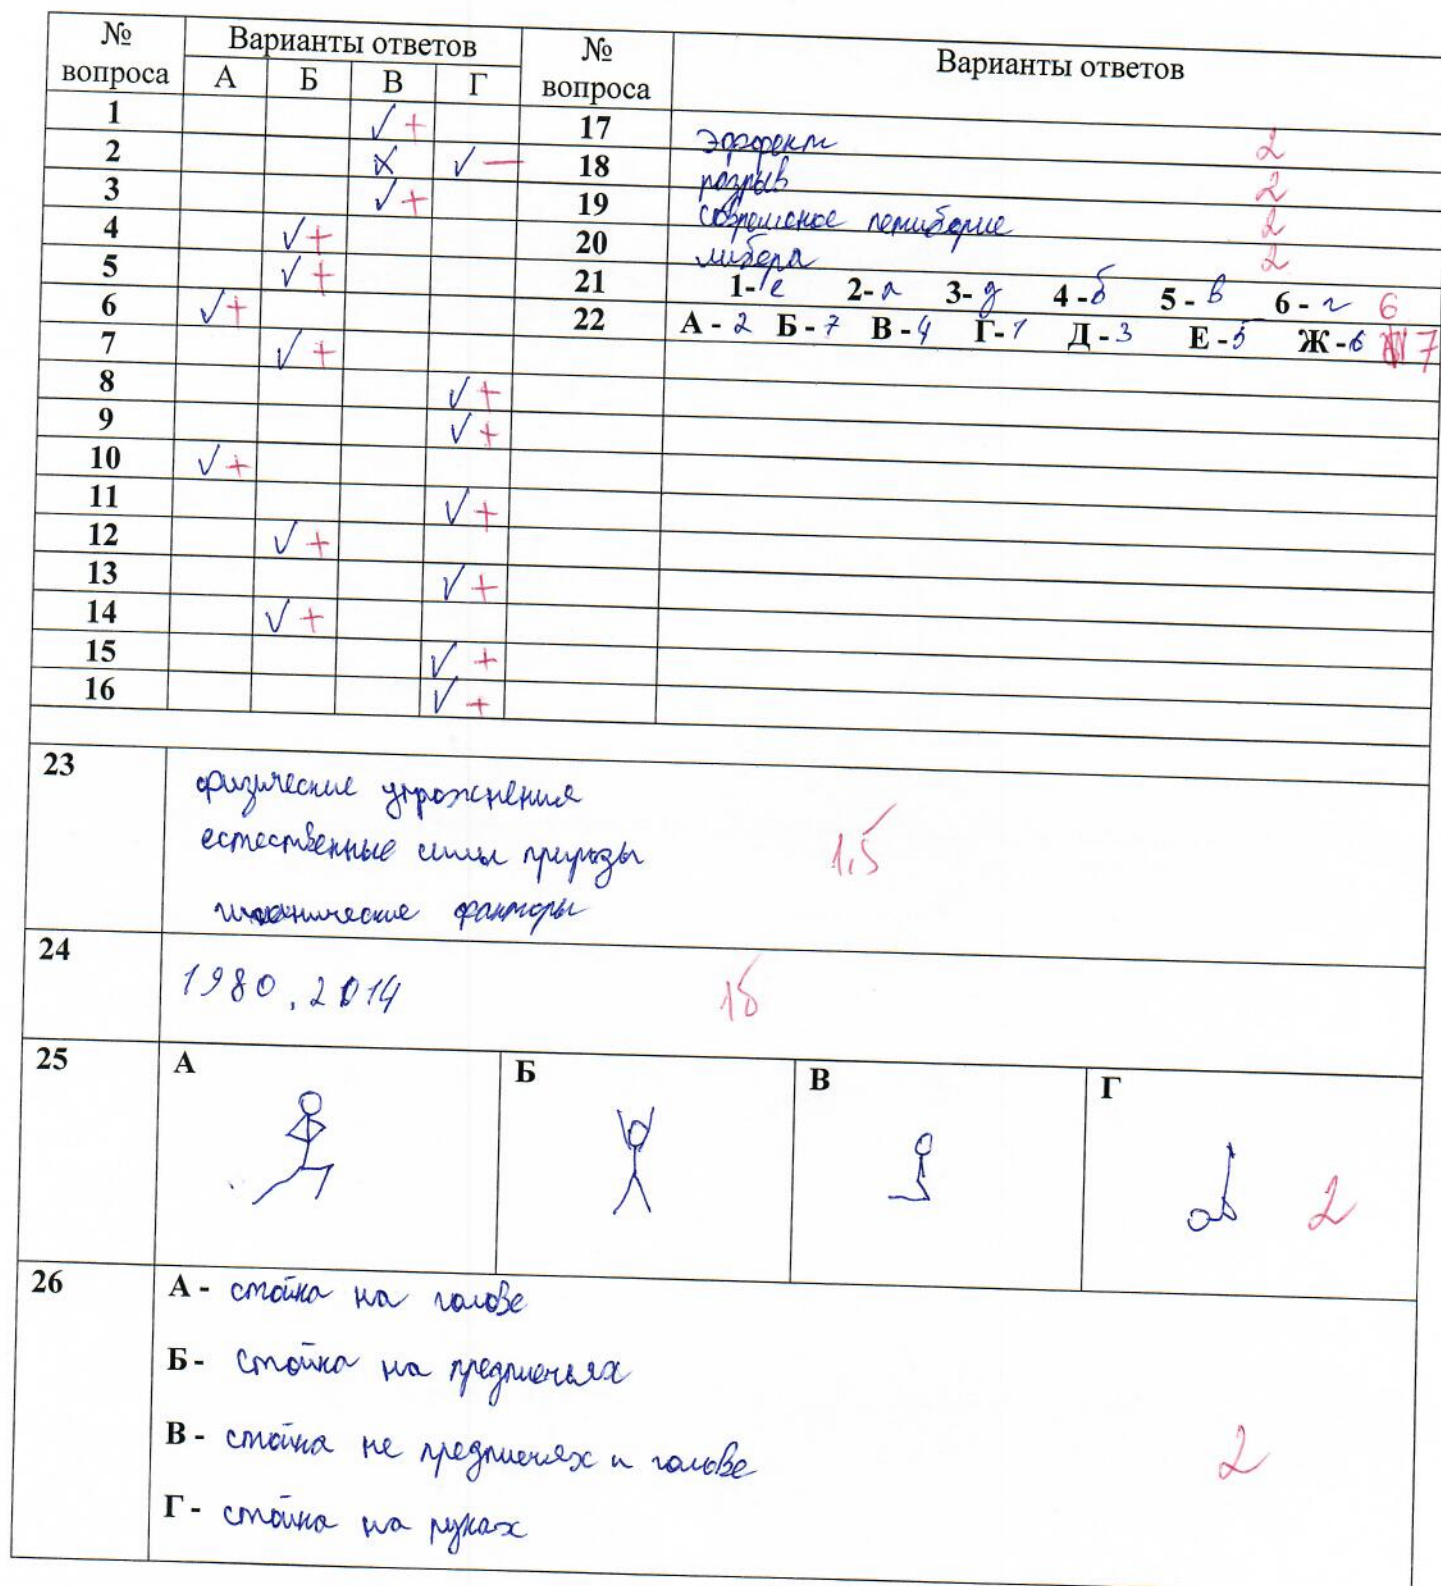 № вопроса Варианты ответов № вопроса Варианты ответов
А Б В Г
1 ✓ + 17 эффект 2
2 х ✓ — 18 разрыв 2
3 ✓ + 19 современное пятиборье 2
4 ✓ + 20 либеро 2
5 ✓ + 21 1- е 2- а 3- д 4 - б 5 - в 6 - г 6
6 ✓ + 22 А - 2 Б - 7 В - 4 Г - 1 Д - 3 Е - 5 Ж - 6 7
7 ✓ +
8 ✓ +
9 ✓ +
10 ✓ +
11 ✓ +
12 ✓ +
13 ✓ +
14 ✓ +
15 ✓ +
16 ✓ +
23 физические упражнения
естественные силы природы 1,5
факторы
24 1980, 2014 1б
25 А Б В Г
2
26 А - стойка на голове
Б - стойка на предплечьях
В - стойка не предплечьях и голове 2
Г - стойка на руках